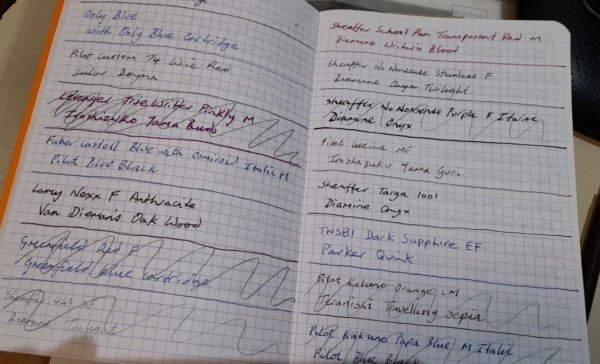 Ooly Blue
with Ooly Blue Cartridge
Pilot Custom 74 Wine Red
Sailor Doyou
TireWritter Pinkly M
Iroshizuku Yama Budo
Faber Castell Blue with Osmiroid Italic M
Pilot Blue Black
Lamy Nexx F Anthracite
Van Dieman's Oak Wood
Greenfield Red F
Greenfield Blue Cartridge
Sheaffer 440 XF
Diamine Twilight
Sheaffer School Pen Transparent Red M
Diamine Writer's Blood
Sheaffer No Nonsense Stainless F
Diamine Onyx Twilight
Sheaffer No Nonsense Purple F Italic
Diamine Onyx
Pilot Lucina MF
Iroshizuku Yama Guri
Sheaffer Targa 1001
Diamine Onyx
TWSBI Dark Sapphire EF
Parker Quink
Pilot Kakuno Orange CM
Teranishi Travelling Sepia
Pilot Kakuno Papa Blue M Italic
Pilot Blue Black